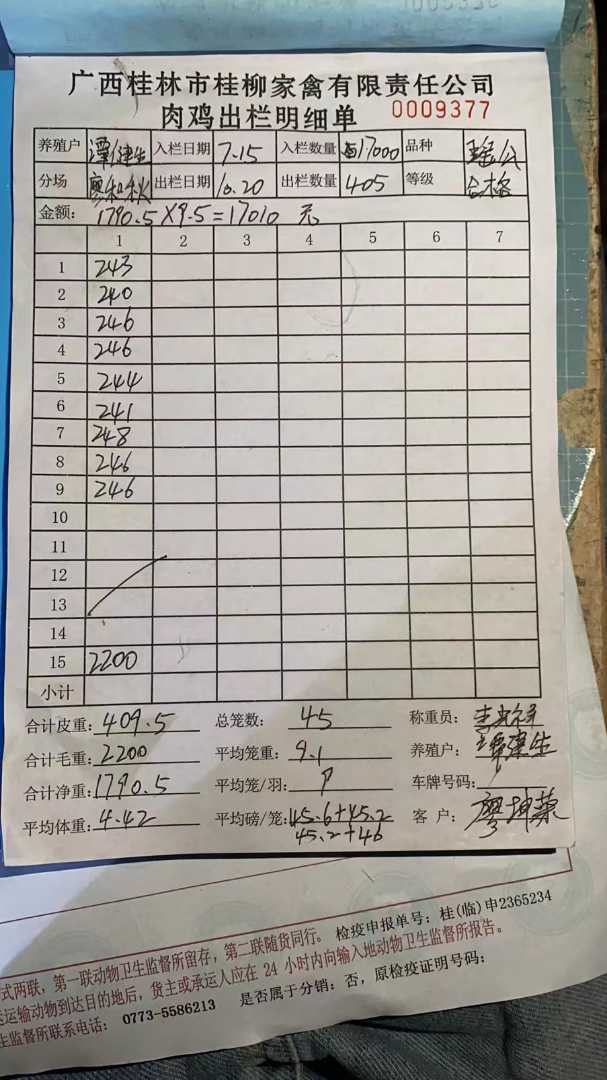 广西桂林市桂柳家禽有限责任公司
肉鸡出栏明细单 0009377
养殖户 谭健生 入栏日期 7.15 入栏数量 17000 品种 瑶公
分场 廖和秋 出栏日期 10.20 出栏数量 405 等级 合格
金额: 1790.5×9.5=17010 元
1 2 3 4 5 6 7
1 243
2 240
3 246
4 246
5 244
6 241
7 248
8 246
9 246
10
11
12
13
14
15 2200
小计
合计皮重: 409.5 总笼数: 45 称重员:
合计毛重: 2200 平均笼重: 9.1 养殖户: 谭健生
合计净重: 1790.5 平均笼/羽: 9 车牌号码:
平均体重: 4.42 平均磅/笼: 45.6+45.2 客户: 廖坤荣
45.2+46
检疫申报单号:桂(临)申2365234
式两联,第一联动物卫生监督所留存,第二联随货同行。
运输动物到达目的地后,货主或承运人应在 24 小时内向输入地动物卫生监督所报告。
生监督所联系电话: 0773-5586213 是否属于分销:否,原检疫证明号码: